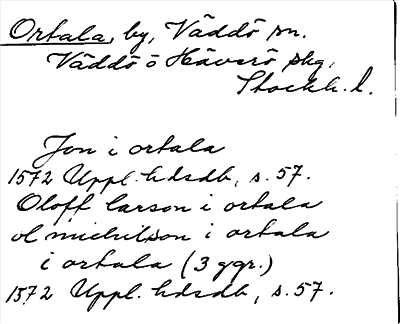 Ortala, by, Väddö sn.
Väddö ö Häverö skg,
Stockh. l.
Jon i ortala
1572 Uppl. hdsdb, s. 57.
Oloff larson i ortala
ol michilson i ortala
i ortala (3 ggr.)
1572 Uppl. hdsdb, s. 57.